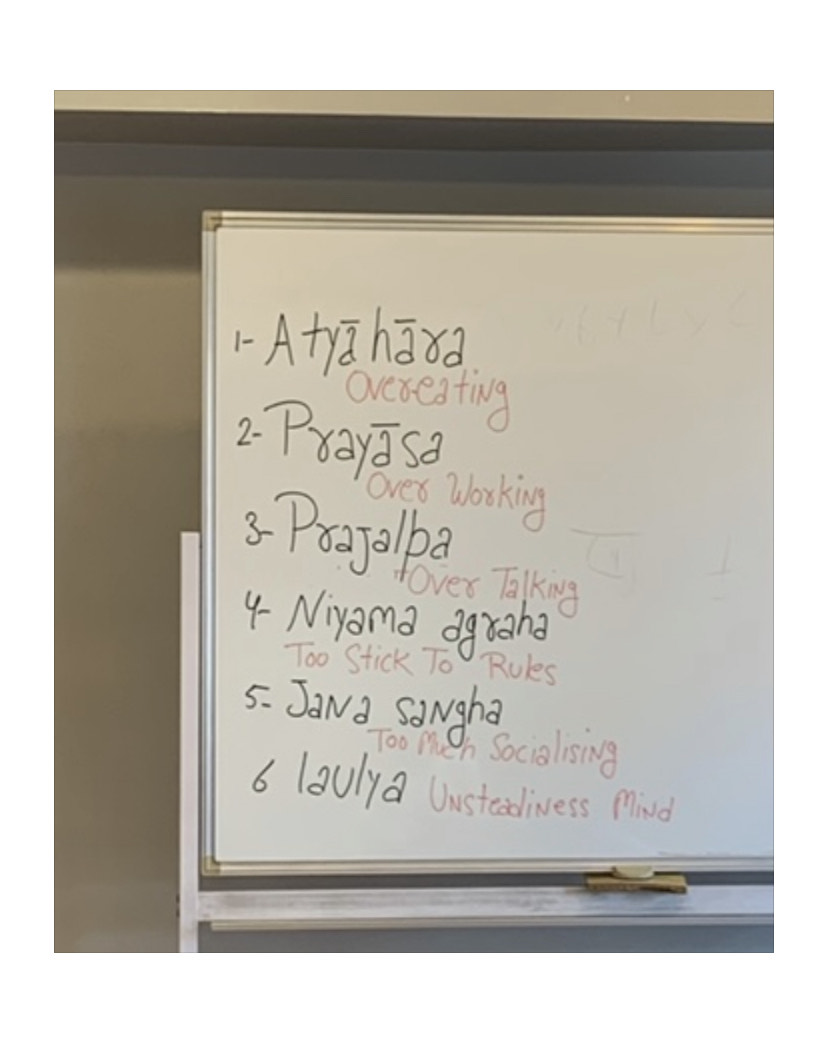 1- Atyāhāra
Overeating
2- Prayāsa
Over Working
3- Prajalpa
Over Talking
4- Niyama agraha
Too Stick To Rules
5- Jana sangha
Too Much Socialising
6 laulya Unsteadiness Mind